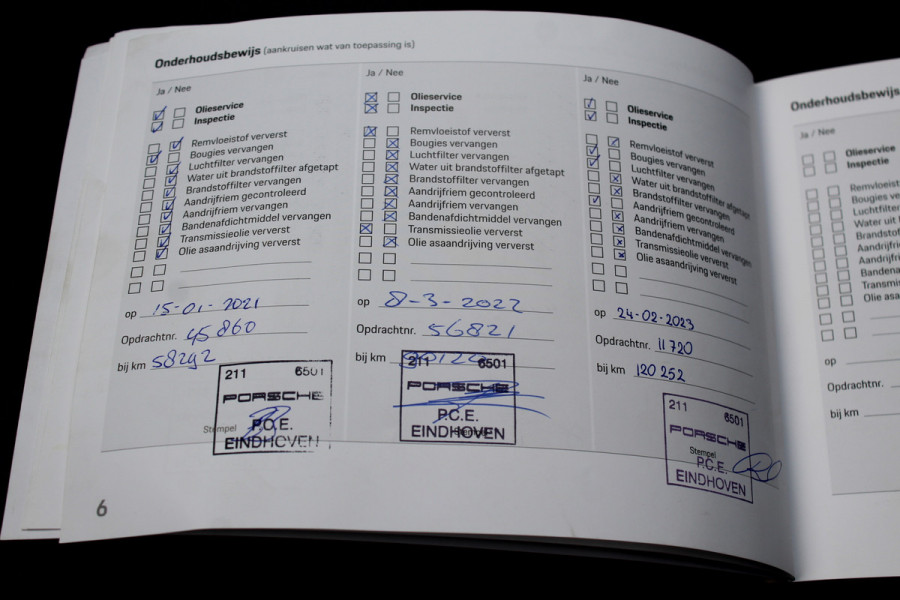 Onderhoudsbewijs (aankruisen wat van toepassing is)
Ja / Nee
Olieservice
Inspectie
Remvloeistof ververst
Bougies vervangen
Luchtfilter vervangen
Water uit brandstoffilter afgetapt
Brandstoffilter vervangen
Aandrijfriem gecontroleerd
Aandrijfriem vervangen
Bandenafdichtmiddel vervangen
Transmissieolie ververst
Olie asaandrijving ververst
op 15-01-2021
Opdrachtnr. 45860
bij km 58292
Stempel
211 6501
PORSCHE
P.C.E.
EINDHOVEN
Ja / Nee
Olieservice
Inspectie
Remvloeistof ververst
Bougies vervangen
Luchtfilter vervangen
Water uit brandstoffilter afgetapt
Brandstoffilter vervangen
Aandrijfriem gecontroleerd
Aandrijfriem vervangen
Bandenafdichtmiddel vervangen
Transmissieolie ververst
Olie asaandrijving ververst
op 8-3-2022
Opdrachtnr. 56821
bij km
211 6501
PORSCHE
P.C.E.
EINDHOVEN
Ja / Nee
Olieservice
Inspectie
Remvloeistof ververst
Bougies vervangen
Luchtfilter vervangen
Water uit brandstoffilter afgetapt
Brandstoffilter vervangen
Aandrijfriem gecontroleerd
Aandrijfriem vervangen
Bandenafdichtmiddel vervangen
Transmissieolie ververst
Olie asaandrijving ververst
op 24-02-2023
Opdrachtnr. 11720
bij km 120252
211 6501
PORSCHE
Stempel
P.C.E.
EINDHOVEN
6
Onderhoudsbewijs
Ja / Nee
Olieservice
Inspectie
Remvloeist
Bougies ve
Luchtfilter
Water uit b
Brandstof
Aandrijfri
Aandrijfri
Bandena
Transmis
Olie asa
op
Opdrachtnr.
bij km